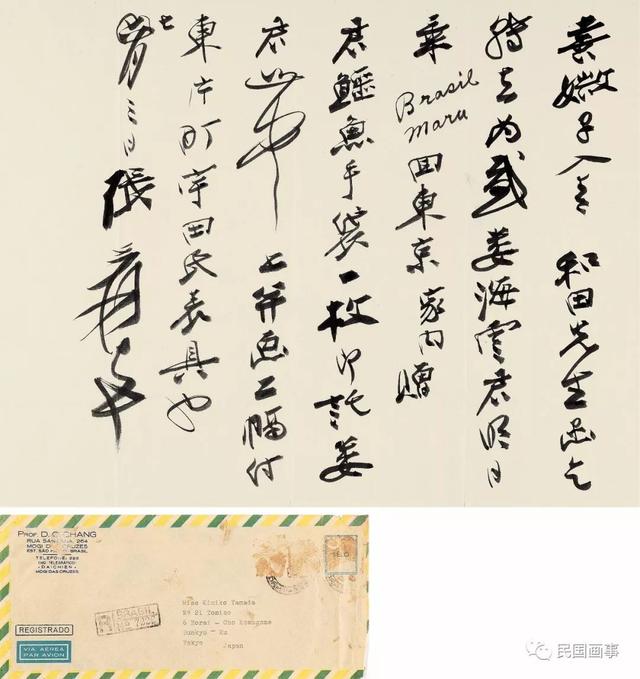 喜媺子入青 和田先生函乞
轉去为感婁海雲君明日
乘 Brasil Maru 回東京 家内贈
君鱷魚手袋一枚即託婁
君 上并画二幅付
東片町宇田氏表具也
七月三日 張爰
PROF. D. C. CHANG
RUA SANTANA, 264
MOGI DAS CRUZES
EST. SÃO PAULO BRASIL
TELEFONE:
END. TELEGRAFICO
"DAICHIEN"
MOGI DAS CRUZES
BRASIL
REGISTRADO
VIA AEREA
PAR AVION
Miss Kimiko Yamada
Nº 21 Tomiso
6 Horai - Cho Komagome
Bunkyo - Ku
Tokyo Japan
民国画事